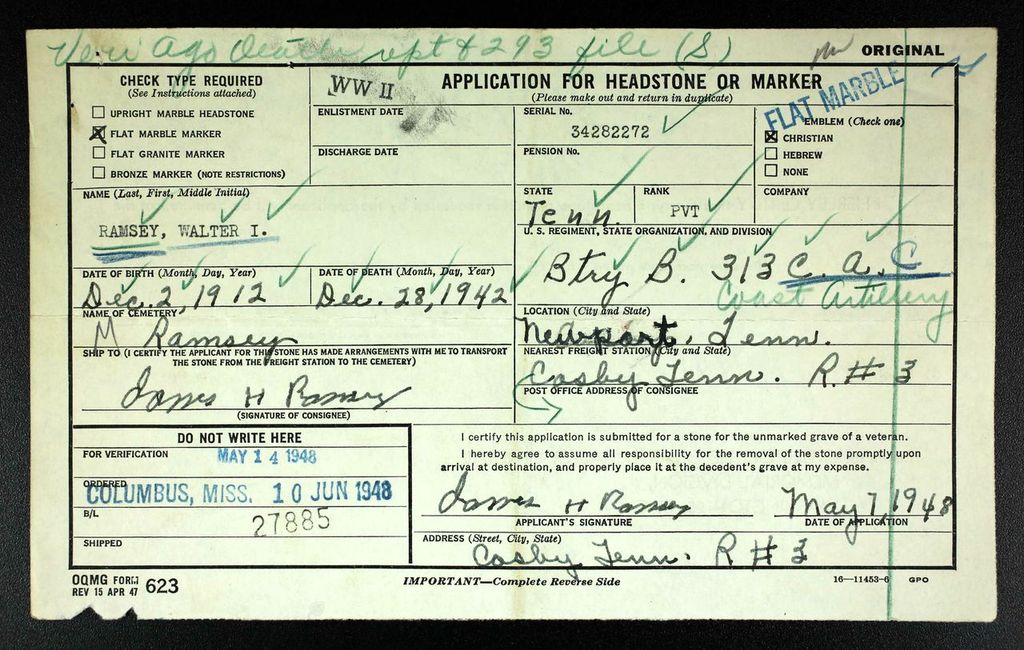 Veri Ago death rpt & 293 file (S)
ORIGINAL
CHECK TYPE REQUIRED
(See Instructions attached)
UPRIGHT MARBLE HEADSTONE
FLAT MARBLE MARKER
FLAT GRANITE MARKER
BRONZE MARKER (NOTE RESTRICTIONS)
WW II
ENLISTMENT DATE
DISCHARGE DATE
APPLICATION FOR HEADSTONE OR MARKER
(Please make out and return in duplicate)
SERIAL No.
34282272
PENSION No.
FLAT MARBLE
EMBLEM (Check one)
CHRISTIAN
HEBREW
NONE
NAME (Last, First, Middle Initial)
RAMSEY, WALTER I.
STATE
Tenn.
RANK
PVT
COMPANY
U. S. REGIMENT, STATE ORGANIZATION, AND DIVISION
Btry B. 313 C. A. C
Coast Artillery
DATE OF BIRTH (Month, Day, Year)
Dec. 2, 1912
DATE OF DEATH (Month, Day, Year)
Dec. 28, 1942
NAME OF CEMETERY
M Ramsey
LOCATION (City and State)
Newport, Tenn.
SHIP TO (I CERTIFY THE APPLICANT FOR THIS STONE HAS MADE ARRANGEMENTS WITH ME TO TRANSPORT
THE STONE FROM THE FREIGHT STATION TO THE CEMETERY)
James H Ramsey
(SIGNATURE OF CONSIGNEE)
NEAREST FREIGHT STATION (City and State)
Cosby Tenn. R # 3
POST OFFICE ADDRESS OF CONSIGNEE
DO NOT WRITE HERE
FOR VERIFICATION
MAY 14 1948
ORDERED
COLUMBUS, MISS. 10 JUN 1948
B/L
27885
SHIPPED
I certify this application is submitted for a stone for the unmarked grave of a veteran.
I hereby agree to assume all responsibility for the removal of the stone promptly upon
arrival at destination, and properly place it at the decedent's grave at my expense.
James H Ramsey
APPLICANT'S SIGNATURE
May 7, 1948
DATE OF APPLICATION
ADDRESS (Street, City, State)
Cosby Tenn. R # 3
OQMG FORM
REV 15 APR 47 623
IMPORTANT—Complete Reverse Side
16—11453-6 GPO